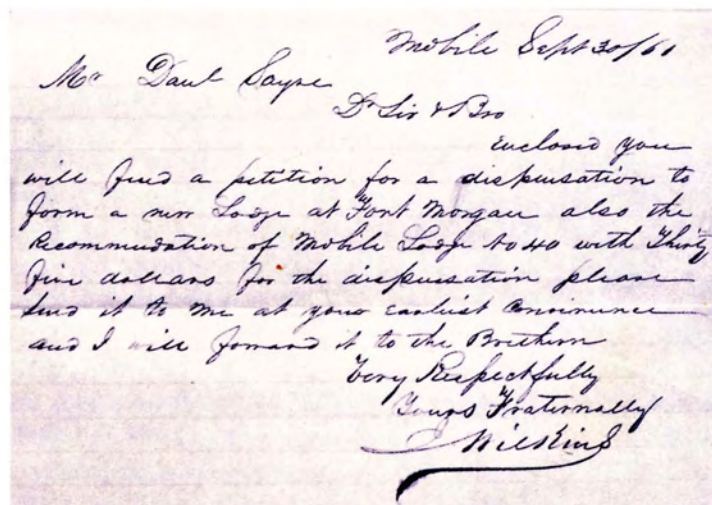 Mobile Sept 30/61
Mr Danl Sayre
Dr Sir & Bro
Enclosed you
will find a petition for a dispensation to
form a new Lodge at Fort Morgan also the
Recommendation of Mobile Lodge No 40 with Thirty
five dollars for the dispensation please
send it to me at your earliest convenience
and I will forward it to the Brethern
Very Respectfully
Yours Fraternally
Wilkins